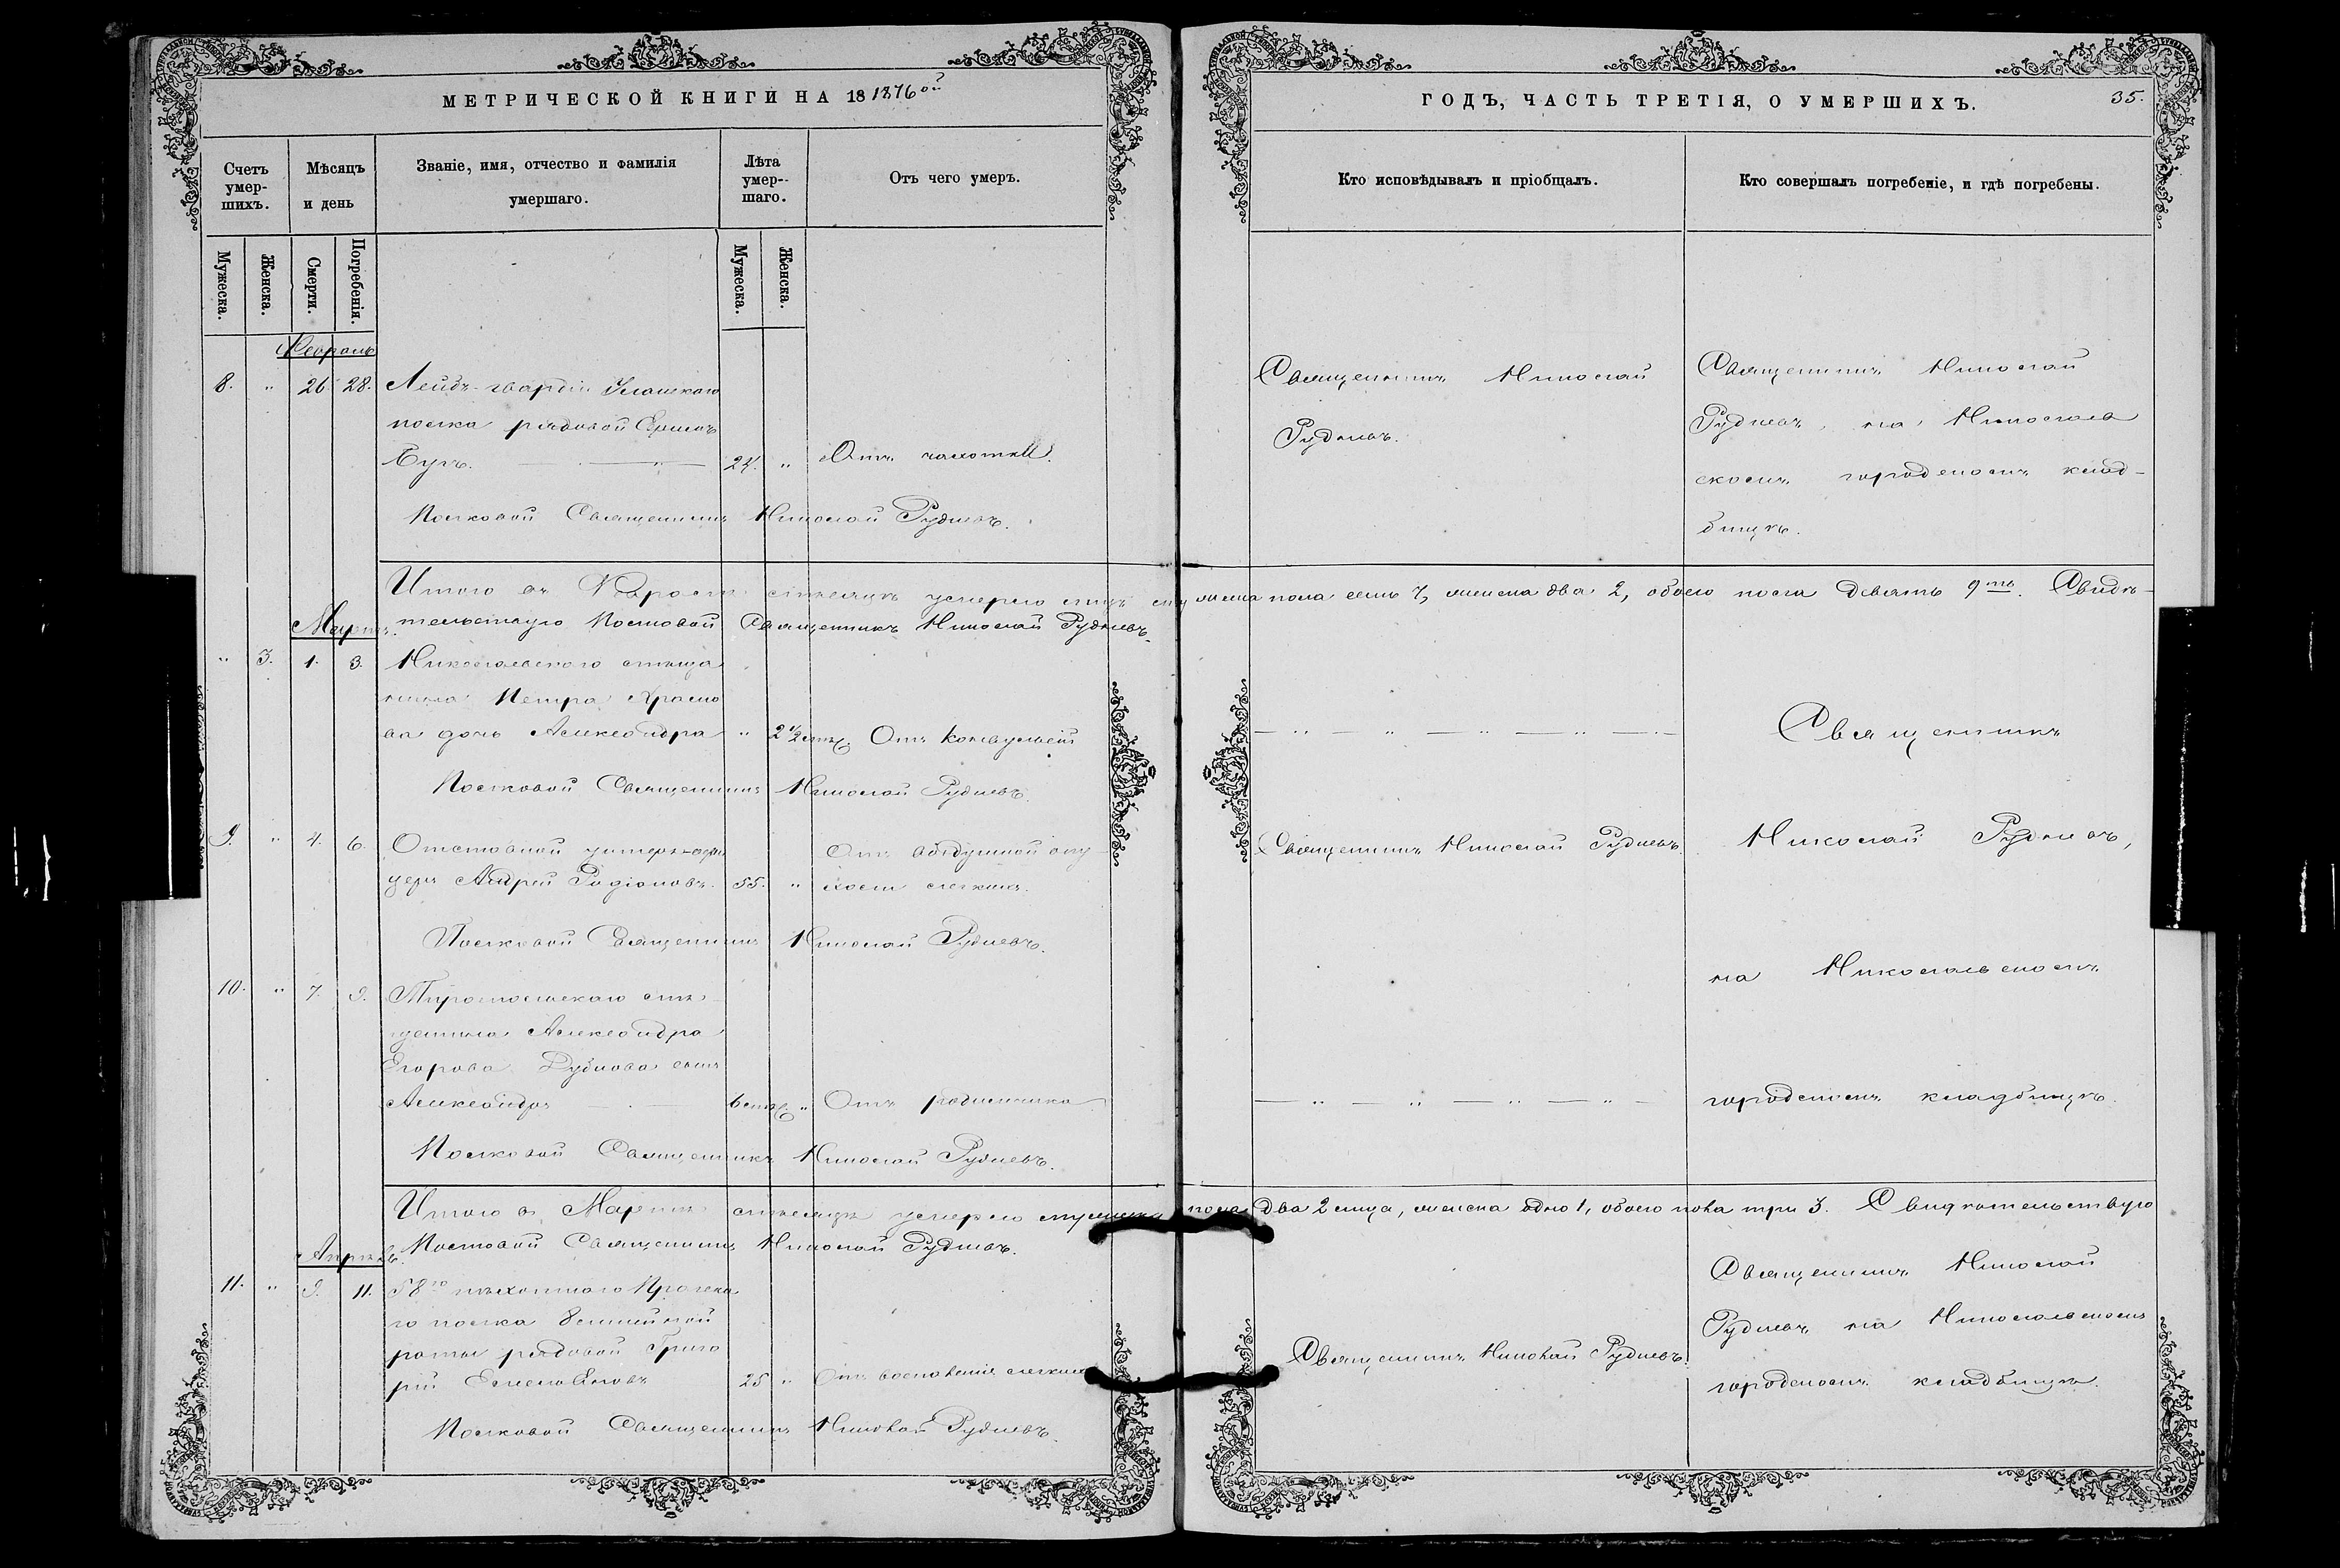 МЕТРИЧЕСКОЙ КНИГИ НА 18 1876ой
ГОДЪ, ЧАСТЬ ТРЕТІЯ, О УМЕРШИХЪ.
35.
Счетъ умер-шихъ.
Мѣсяцъ и день
Званіе, имя, отчество и фамилія умершаго.
Лѣта умер-шаго.
Отъ чего умеръ.
Кто исповѣдывалъ и пріобщалъ.
Кто совершалъ погребеніе, и гдѣ погребены.
Мужеска.
Женска.
Смерти.
Погребенія.
Мужеска.
Женска.
Февраль
8. " 26 28. Лейбъ-гвардіи Уланскаго
полка рядовой
24. " Отъ чахотки.
Полковой Священникъ Николай Рудневъ.
Священникъ Николай
Рудневъ.
Священникъ Николай
Рудневъ, на Николаев
скомъ городскомъ клад-
бищѣ.
Итого въ Февралѣ мѣсяцѣ умерло лицъ муж
леска пола семь 7, женска два 2, обоего пола девять 9ть. Свидѣ-
тельствую Полковой Священникъ Николай Рудневъ.
Мартъ.
" 3. 1. 3. Николаевскаго мѣща
нина Петра Красно
ва дочь Александра " 2 1/2 Отъ конвульсій
Полковой Священникъ Николай Рудневъ.
9. " 4. 6. Отставной унтеръ-офи
церъ Андрей Родіоновъ. 55. "
Отъ воздушной опу-
холи легкихъ.
Священникъ Николай Рудневъ.
Полковой Священникъ Николай Рудневъ.
10. " 7. 9.
щанина Александра
Егорова Дубнова сынъ
Александръ 6 " Отъ родимчика
Полковой Священникъ Николай Рудневъ.
Священникъ
Николай Рудневъ,
на Николаевскомъ
городскомъ кладбищѣ.
Итого въ Мартѣ мѣсяцѣ умерло мужеска пола два 2 лица, женска одно 1, обоего пола три 3. Свидѣтельствую
Полковой Священникъ Николай Рудневъ.
Апрѣль.
11. " 9. 11. 58го пѣхотнаго Прагска
го полка 8 линейной
роты рядовой Григо
рій 25 " Отъ воспаленія легкихъ
Полковой Священникъ Николай Рудневъ.
Священникъ Николай Рудневъ.
Священникъ Николай
Рудневъ на Николаевскомъ
городскомъ кладбищѣ.